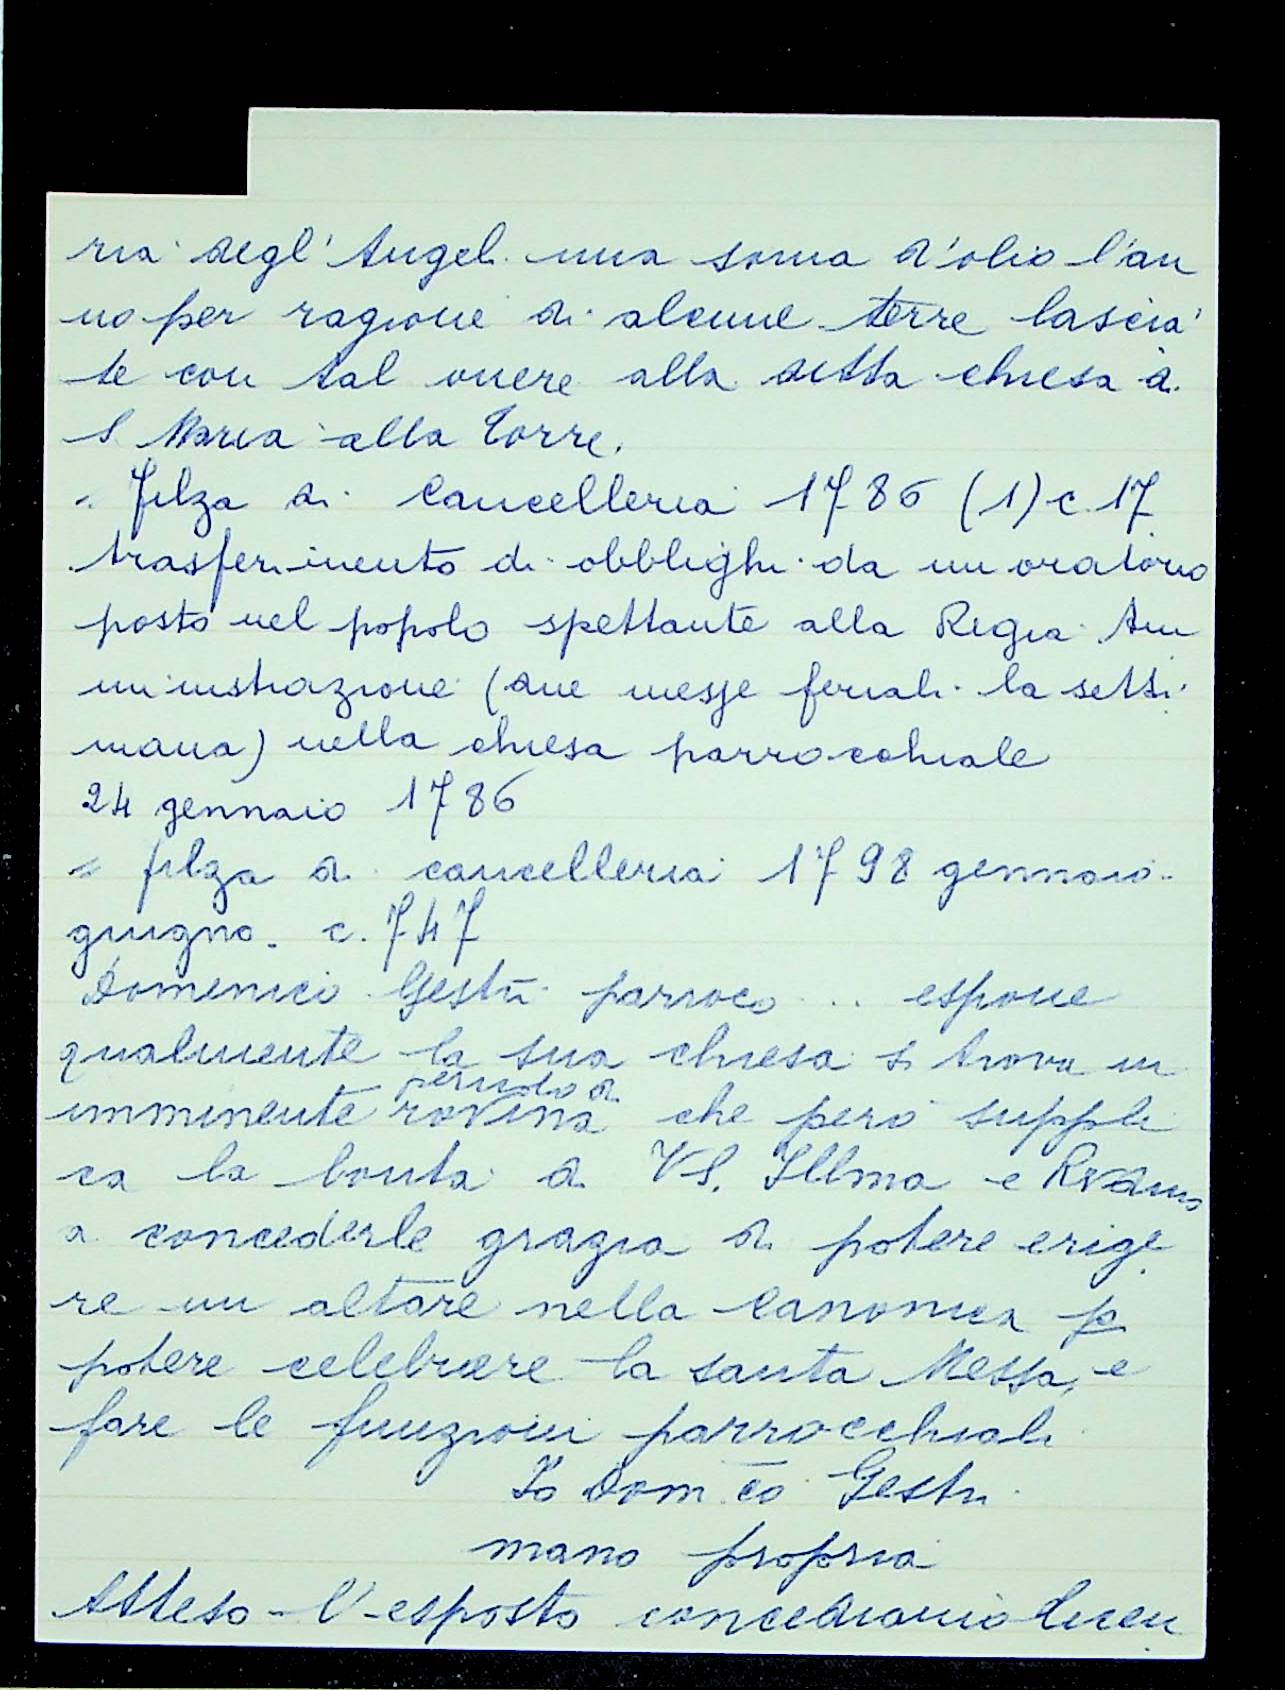 ria degl'Angeli una soma d'olio l'an
no per ragione di alcune terre lascia
te con tal onere alla detta chiesa di
S. Maria alla Torre.
= Filza di Cancelleria 1786 (1) c. 17
trasferimento di obblighi da un oratorio
posto nel popolo spettante alla Regia Am
ministrazione (due messe feriali la setti
mana) nella chiesa parrocchiale
24 gennaio 1786
= filza di cancelleria 1798 gennaio-
giugno. c. 747
Domenico Gestri parroco ... espone
qualmente la sua chiesa si trova in
imminente pericolo di rovina che però suppli
ca la bontà di VS. Illma e Rvdma
a concederle grazia di potere erige
re un altare nella Canonica p
potere celebrare la santa Messa, e
fare le funzioni parrocchiali
Io Dom.co Gestri
mano propria
Atteso l'esposto concediamo licen